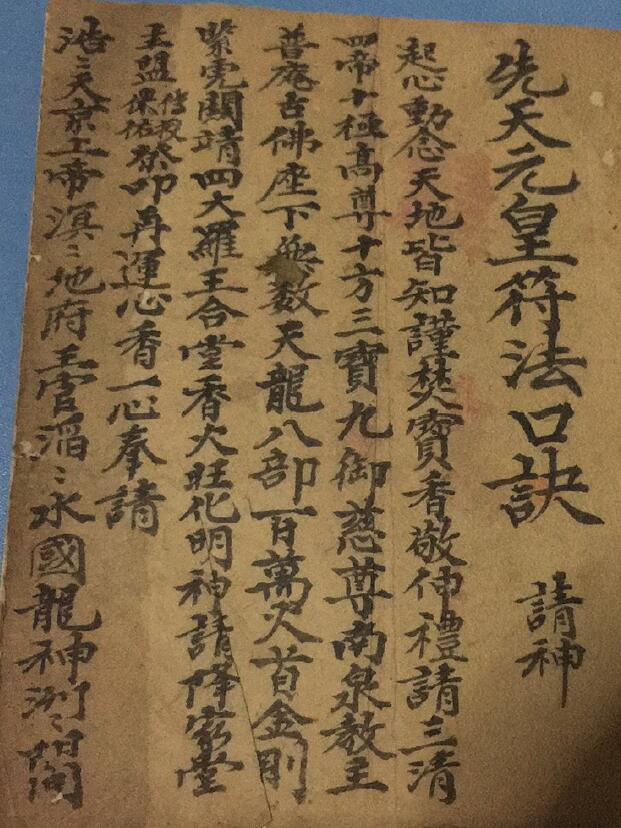 先天元皇符法口訣
請神
起心動念天地皆知謹焚寶香敬伸禮請三清
四帝十極高尊十方三寶九御慈尊南泉教主
普庵古佛座下無数天龍八部百萬火首金刚
紫雲關靖四大羅王合堂香火旺化明神請降家堂
玉盟保佑 叩再運心香一心奉請
浩〻天京上帝溟〻地府王官滔〻水國龍神 〻 間